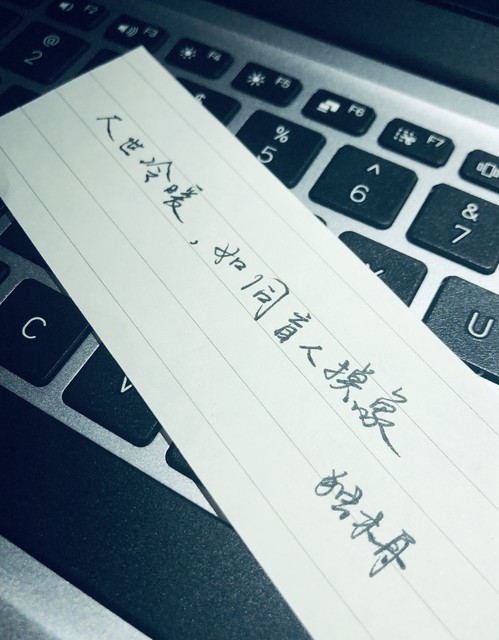 人世冷暖，如同盲人摸象
F2
F3
F4
F5
F6
F7
@
2
%
5
^
6
&
7
U
C
V